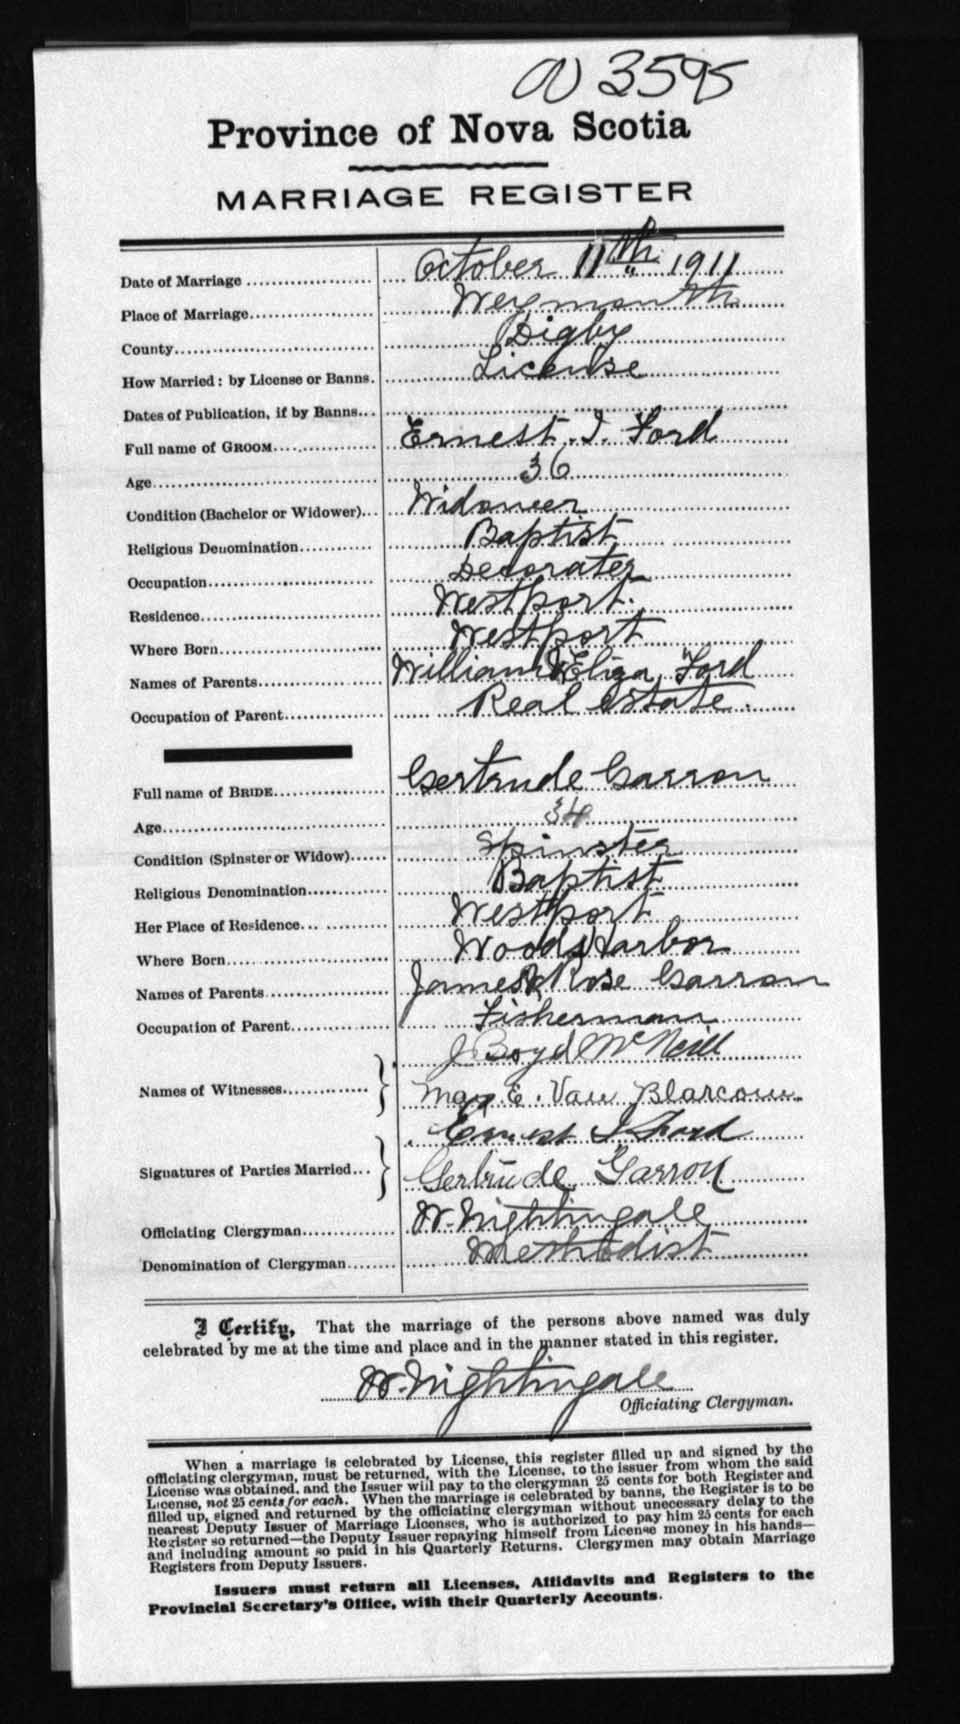 N 3595
Province of Nova Scotia
MARRIAGE REGISTER
Date of Marriage October 11th 1911
Place of Marriage Weymouth
County Digby
How Married: by License or Banns. License
Dates of Publication, if by Banns
Full name of GROOM Ernest I. Ford
Age 36
Condition (Bachelor or Widower) Widower
Religious Denomination Baptist
Occupation Decorater
Residence Westport.
Where Born Westport
Names of Parents William & Eliza Ford
Occupation of Parent Real estate.
Full name of BRIDE Gertrude Garron
Age 34
Condition (Spinster or Widow) Spinster
Religious Denomination Baptist
Her Place of Residence Westport
Where Born Woods Harbor
Names of Parents James & Rose Garron
Occupation of Parent Fisherman
J Boyd McNeill
Names of Witnesses
May E. Van Blarcom.
Ernest I Ford
Signatures of Parties Married
Gertrude Garron
Officiating Clergyman W. Nightingale
Denomination of Clergyman Methodist
I Certify, That the marriage of the persons above named was duly
celebrated by me at the time and place and in the manner stated in this register.
W. Nightingale
Officiating Clergyman.
When a marriage is celebrated by License, this register filled up and signed by the
officiating clergyman, must be returned, with the License, to the issuer from whom the said
License was obtained, and the Issuer will pay to the clergyman 25 cents for both Register and
License, not 25 cents for each. When the marriage is celebrated by banns, the Register is to be
filled up, signed and returned by the officiating clergyman without unnecessary delay to the
nearest Deputy Issuer of Marriage Licenses, who is authorized to pay him 25 cents for each
Register so returned—the Deputy Issuer repaying himself from License money in his hands—
and including amount so paid in his Quarterly Returns. Clergymen may obtain Marriage
Registers from Deputy Issuers.
Issuers must return all Licenses, Affidavits and Registers to the
Provincial Secretary's Office, with their Quarterly Accounts.